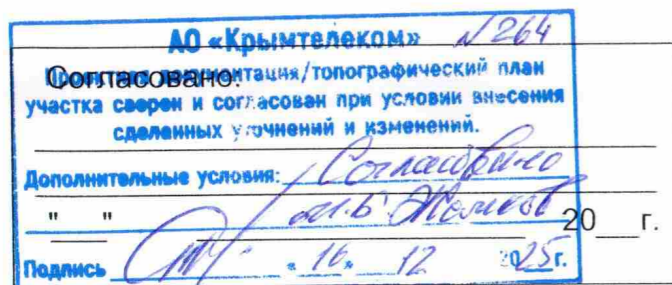 АО «Крымтелеком» №264
Согласовано:
Проектная документация/топографический план
участка сверен и согласован при условии внесения
сделанных уточнений и изменений.
Дополнительные условия: Согласовано
" " 20 г.
Подпись «16» 12 2025г.